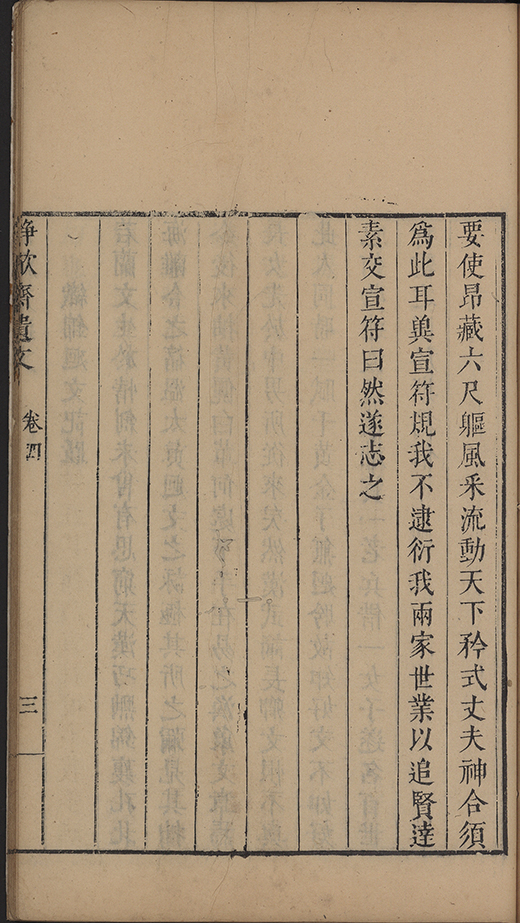 要使昂藏六尺軀風采流動天下矜式丈夫神合須
爲此耳與宣符規我不逮衍我兩家世業以追賢達
素交宣符曰然遂志之
齋遺文
卷四
三